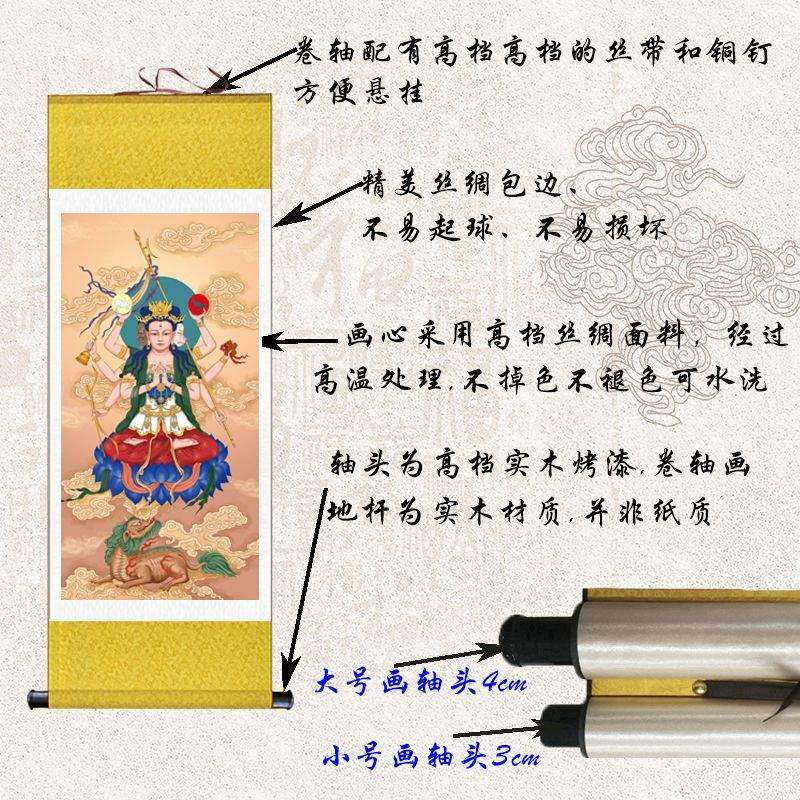 卷轴配有高档高档的丝带和铜钉
方便悬挂
精美丝绸包边、
不易起球、不易损坏
画心采用高档丝绸面料，经过
高温处理.不掉色不褪色可水洗
轴头为高档实木烤漆.卷轴画
地杆为实木材质.并非纸质
大号画轴头4cm
小号画轴头3cm